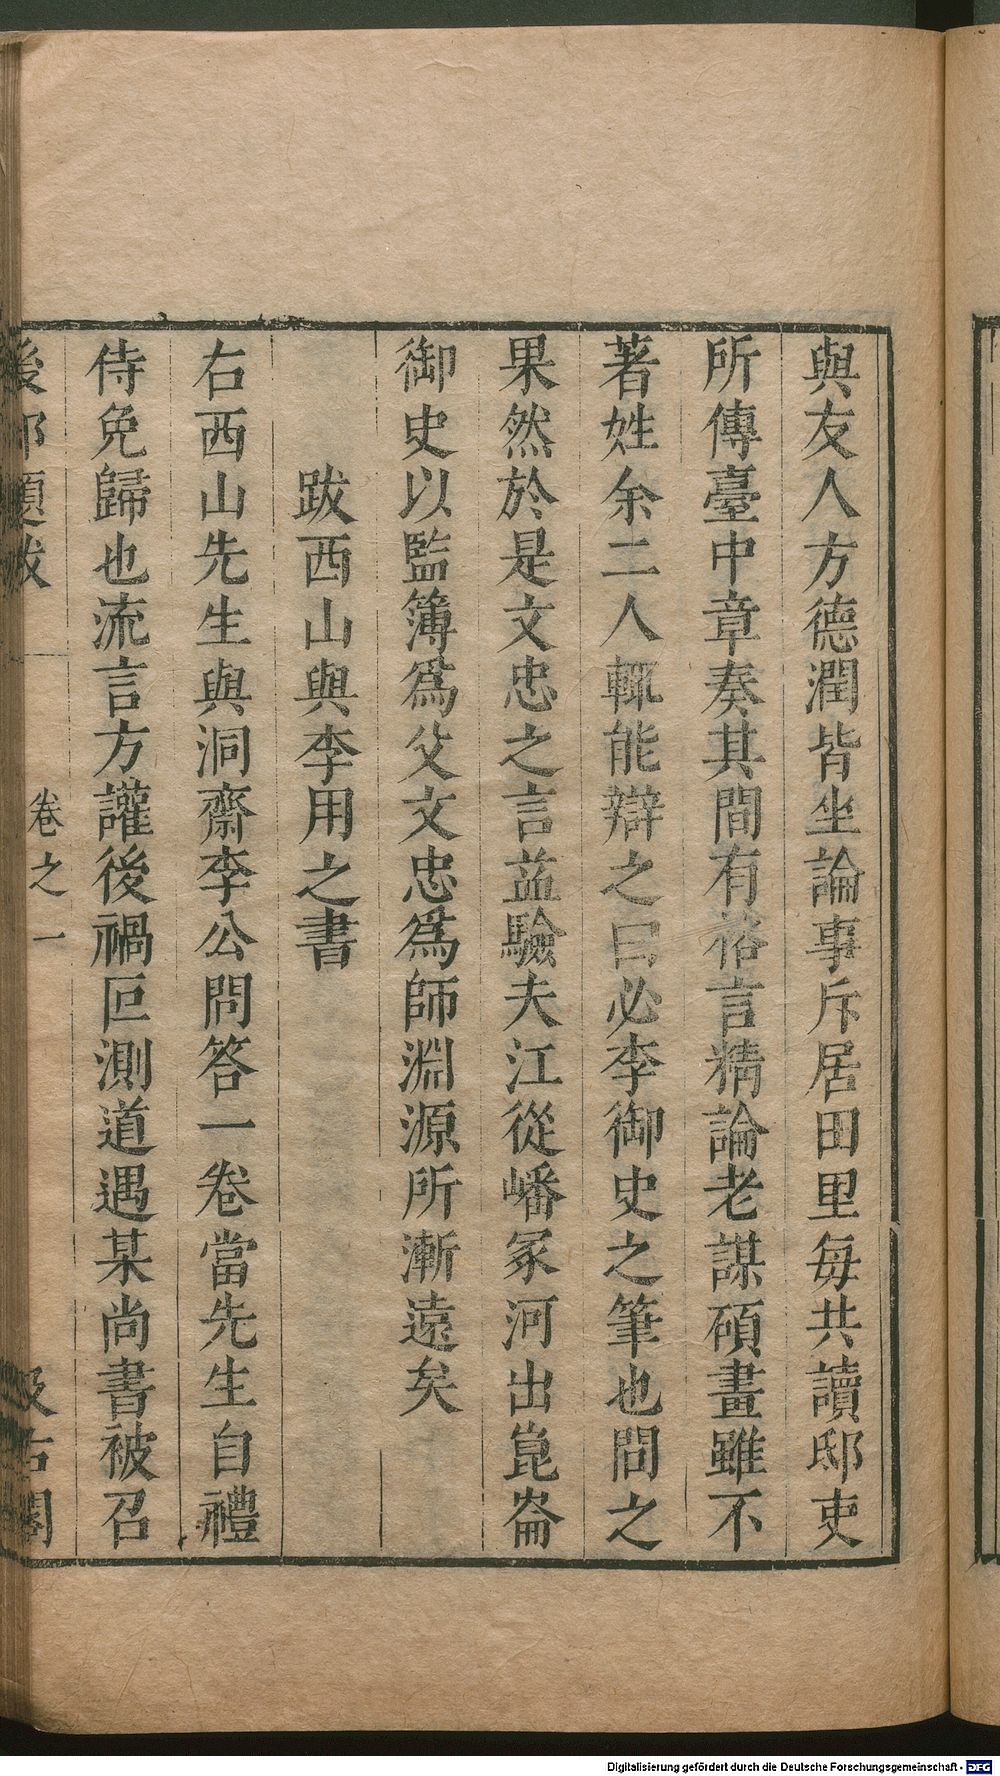 與友人方德潤皆坐論事斥居田里每共讀邸吏
所傳臺中章奏其間有裕言精論老謀碩畫雖不
著姓余二人輒能辯之曰必李御史之筆也問之
果然於是文忠之言益驗夫江從嶓冢河出崑崙
御史以監簿爲父文忠爲師淵源所漸遠矣
跋西山與李用之書
右西山先生與洞齋李公問答一卷當先生自禮
侍免歸也流言方讙後禍叵測道遇某尚書被召
後邨題跋 卷之一 汲古閣
Digitalisierung gefördert durch die Deutsche Forschungsgemeinschaft - DFG